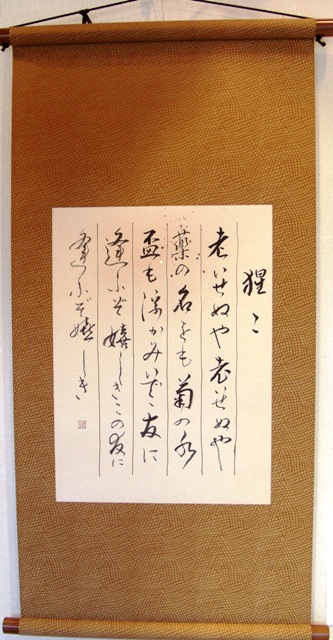 猩〻
老いせぬや老いせぬや
藥の名をも菊の水
盃も浮かみいでゝ友に
逢ふぞ嬉しきこの友に
逢ふぞ嬉しき